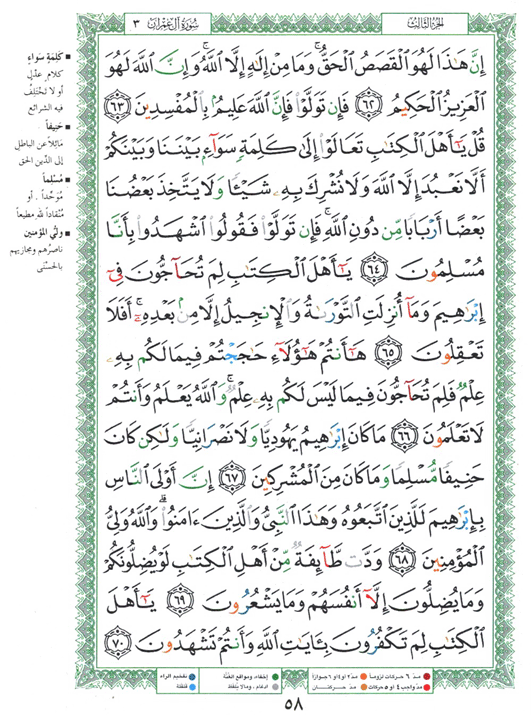 الجزء الثالث
سورة آل عمران ٣
إِنَّ هَٰذَا لَهُوَ ٱلْقَصَصُ ٱلْحَقُّ ۚ وَمَا مِنْ إِلَٰهٍ إِلَّا ٱللَّهُ ۚ وَإِنَّ ٱللَّهَ لَهُوَ
ٱلْعَزِيزُ ٱلْحَكِيمُ ﴿٦٢﴾ فَإِن تَوَلَّوْا۟ فَإِنَّ ٱللَّهَ عَلِيمٌۢ بِٱلْمُفْسِدِينَ ﴿٦٣﴾
قُلْ يَٰٓأَهْلَ ٱلْكِتَٰبِ تَعَالَوْا۟ إِلَىٰ كَلِمَةٍ سَوَآءٍۭ بَيْنَنَا وَبَيْنَكُمْ
أَلَّا نَعْبُدَ إِلَّا ٱللَّهَ وَلَا نُشْرِكَ بِهِۦ شَيْـًٔا وَلَا يَتَّخِذَ بَعْضُنَا
بَعْضًا أَرْبَابًا مِّن دُونِ ٱللَّهِ ۚ فَإِن تَوَلَّوْا۟ فَقُولُوا۟ ٱشْهَدُوا۟ بِأَنَّا
مُسْلِمُونَ ﴿٦٤﴾ يَٰٓأَهْلَ ٱلْكِتَٰبِ لِمَ تُحَآجُّونَ فِىٓ
إِبْرَٰهِيمَ وَمَآ أُنزِلَتِ ٱلتَّوْرَىٰةُ وَٱلْإِنجِيلُ إِلَّا مِنۢ بَعْدِهِۦٓ ۚ أَفَلَا
تَعْقِلُونَ ﴿٦٥﴾ هَٰٓأَنتُمْ هَٰٓؤُلَآءِ حَٰجَجْتُمْ فِيمَا لَكُم بِهِۦ
عِلْمٌ فَلِمَ تُحَآجُّونَ فِيمَا لَيْسَ لَكُم بِهِۦ عِلْمٌ ۚ وَٱللَّهُ يَعْلَمُ وَأَنتُمْ
لَا تَعْلَمُونَ ﴿٦٦﴾ مَا كَانَ إِبْرَٰهِيمُ يَهُودِيًّا وَلَا نَصْرَانِيًّا وَلَٰكِن كَانَ
حَنِيفًا مُّسْلِمًا وَمَا كَانَ مِنَ ٱلْمُشْرِكِينَ ﴿٦٧﴾ إِنَّ أَوْلَى ٱلنَّاسِ
بِإِبْرَٰهِيمَ لَلَّذِينَ ٱتَّبَعُوهُ وَهَٰذَا ٱلنَّبِىُّ وَٱلَّذِينَ ءَامَنُوا۟ ۗ وَٱللَّهُ وَلِىُّ
ٱلْمُؤْمِنِينَ ﴿٦٨﴾ وَدَّت طَّآئِفَةٌ مِّنْ أَهْلِ ٱلْكِتَٰبِ لَوْ يُضِلُّونَكُمْ
وَمَا يُضِلُّونَ إِلَّآ أَنفُسَهُمْ وَمَا يَشْعُرُونَ ﴿٦٩﴾ يَٰٓأَهْلَ
ٱلْكِتَٰبِ لِمَ تَكْفُرُونَ بِـَٔايَٰتِ ٱللَّهِ وَأَنتُمْ تَشْهَدُونَ ﴿٧٠﴾
■ كَلِمَةٍ سَوَاءٍ
كلامٍ عدلٍ
أو لا تختلف
فيه الشرائع
■ حَنِيفاً
مائلاً عن الباطل
إلى الدّين الحق
■ مُسْلِماً
مُوَحّداً . أو
منقاداً لله مطيعاً
■ وَلِيُّ المُؤْمِنين
ناصرُهم ومجازيهم
بالحسنى
● مدّ ٦ حركات لزوماً ● مدّ ٢ أو ٤ أو ٦ جوازاً ● إخفاء، ومواقع الغنّة ● تفخيم الراء
● مدّ واجب ٤ أو ٥ حركات ● مدّ حركتان ● ادغام ، ومالا يلفظ ● قلقلة
٥٨